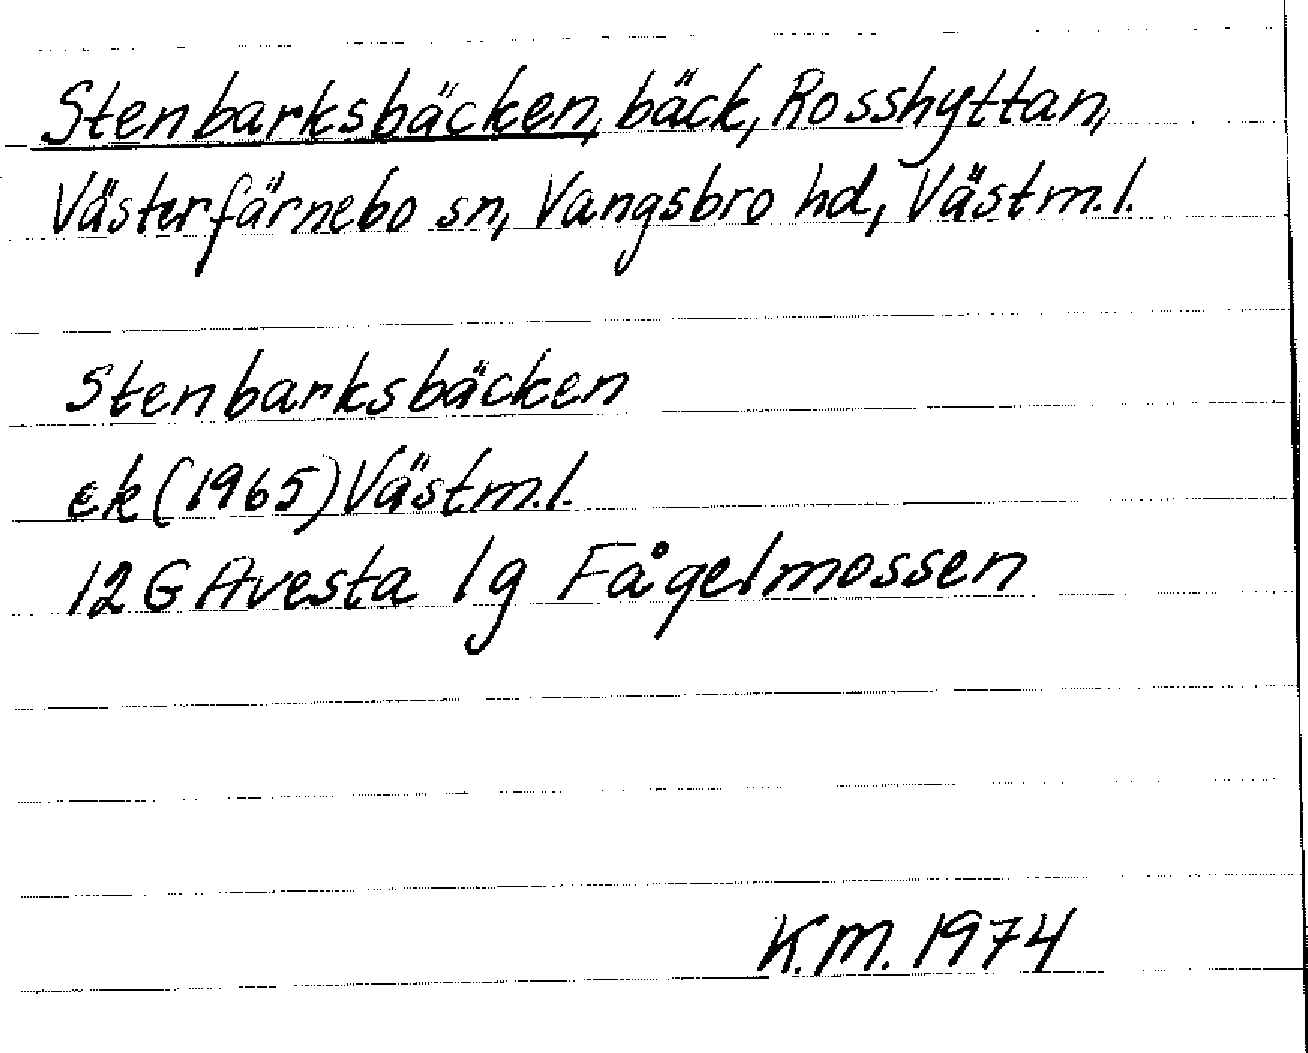 Stenbarksbäcken, bäck, Rosshyttan,
Västerfärnebo sn, Vangsbro hd, Västm.l.
Stenbarksbäcken
ek (1965) Västm.l.
12 G Avesta 1g Fågelmossen
K.M. 1974